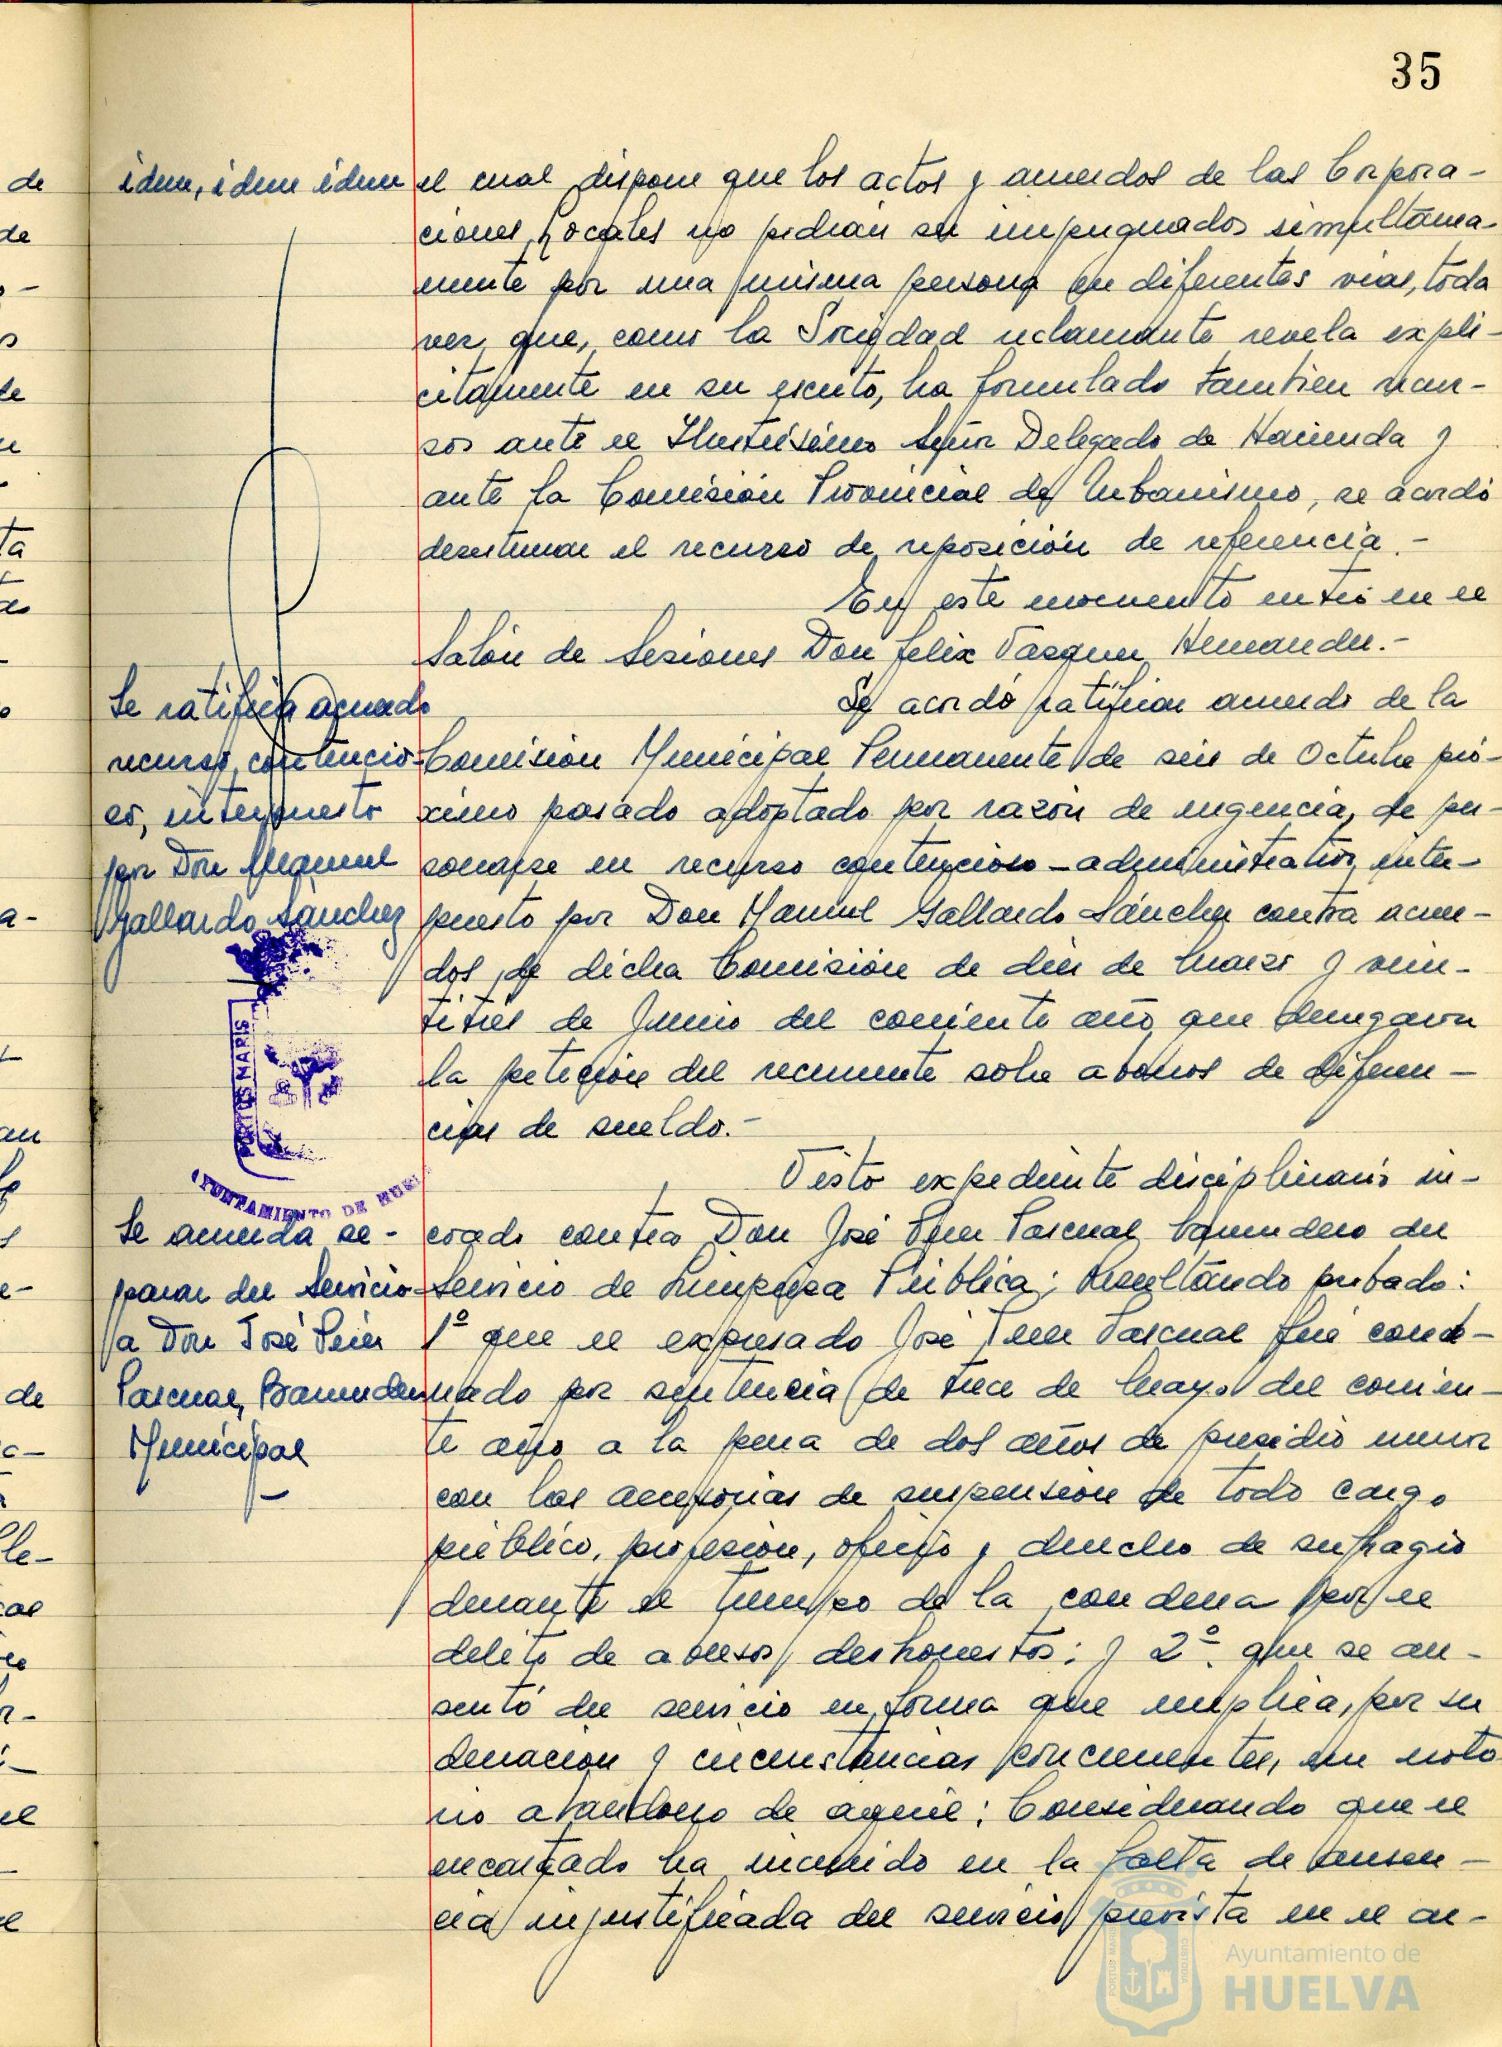 35
idem, idem idem
el cual dispone que los actos y acuerdos de las Corpora-
ciones Locales no podrán ser impugnados simultánea-
mente por una misma persona en diferentes vias, toda
vez que, como la Sociedad reclamante revela explí-
citamente en su escrito, ha formulado tambien recur-
sos ante el Ilustrísimo Señor Delegado de Hacienda y
ante la Comisión Provincial de Urbanismo, se acordó
desestimar el recurso de reposición de referencia.-
En este momento entró en el
Salón de Sesiones Don Felix Vazquez Hernandez.-
Se ratifica acuerdo
recurso contencio-
so, interpuesto
por Don Manuel
Gallardo Sánchez
Se acordó ratificar acuerdo de la
Comisión Municipal Permanente de seis de Octubre pró-
ximo pasado adoptado por razón de urgencia, de per-
sonarse en recurso contencioso-administrativo inter-
puesto por Don Manuel Gallardo Sánchez contra acuer-
dos de dicha Comisión de diez de Marzo y vein-
titres de Junio del corriente año que denegaron
la petición del recurrente sobre abonos de diferen-
cias de sueldo.-
PORTUS MARIS
AYUNTAMIENTO DE HUE
Se acuerda se-
parar del Servicio
a Don José Perez
Pascual, Barrendero
Municipal
Visto expediente disciplinario in-
coado contra Don José Perez Pascual Barrendero del
Servicio de Limpieza Pública; Resultando probado:
1º que el expresado José Perez Pascual fué conde-
nado por sentencia de trece de Mayo del corrien-
te año a la pena de dos años de presidio menor
con las accesorias de suspensión de todo cargo
público, profesión, oficio y derecho de sufragio
durante el tiempo de la condena por el
delito de abusos deshonestos; y 2º. que se au-
sentó del servicio en forma que implica, por su
duración y circunstancias concurrentes, un noto
rio abandono de aquél; Considerando que el
encartado ha incurrido en la falta de ausen-
cia injustificada del servicio prevista en el ar-
Ayuntamiento de
HUELVA